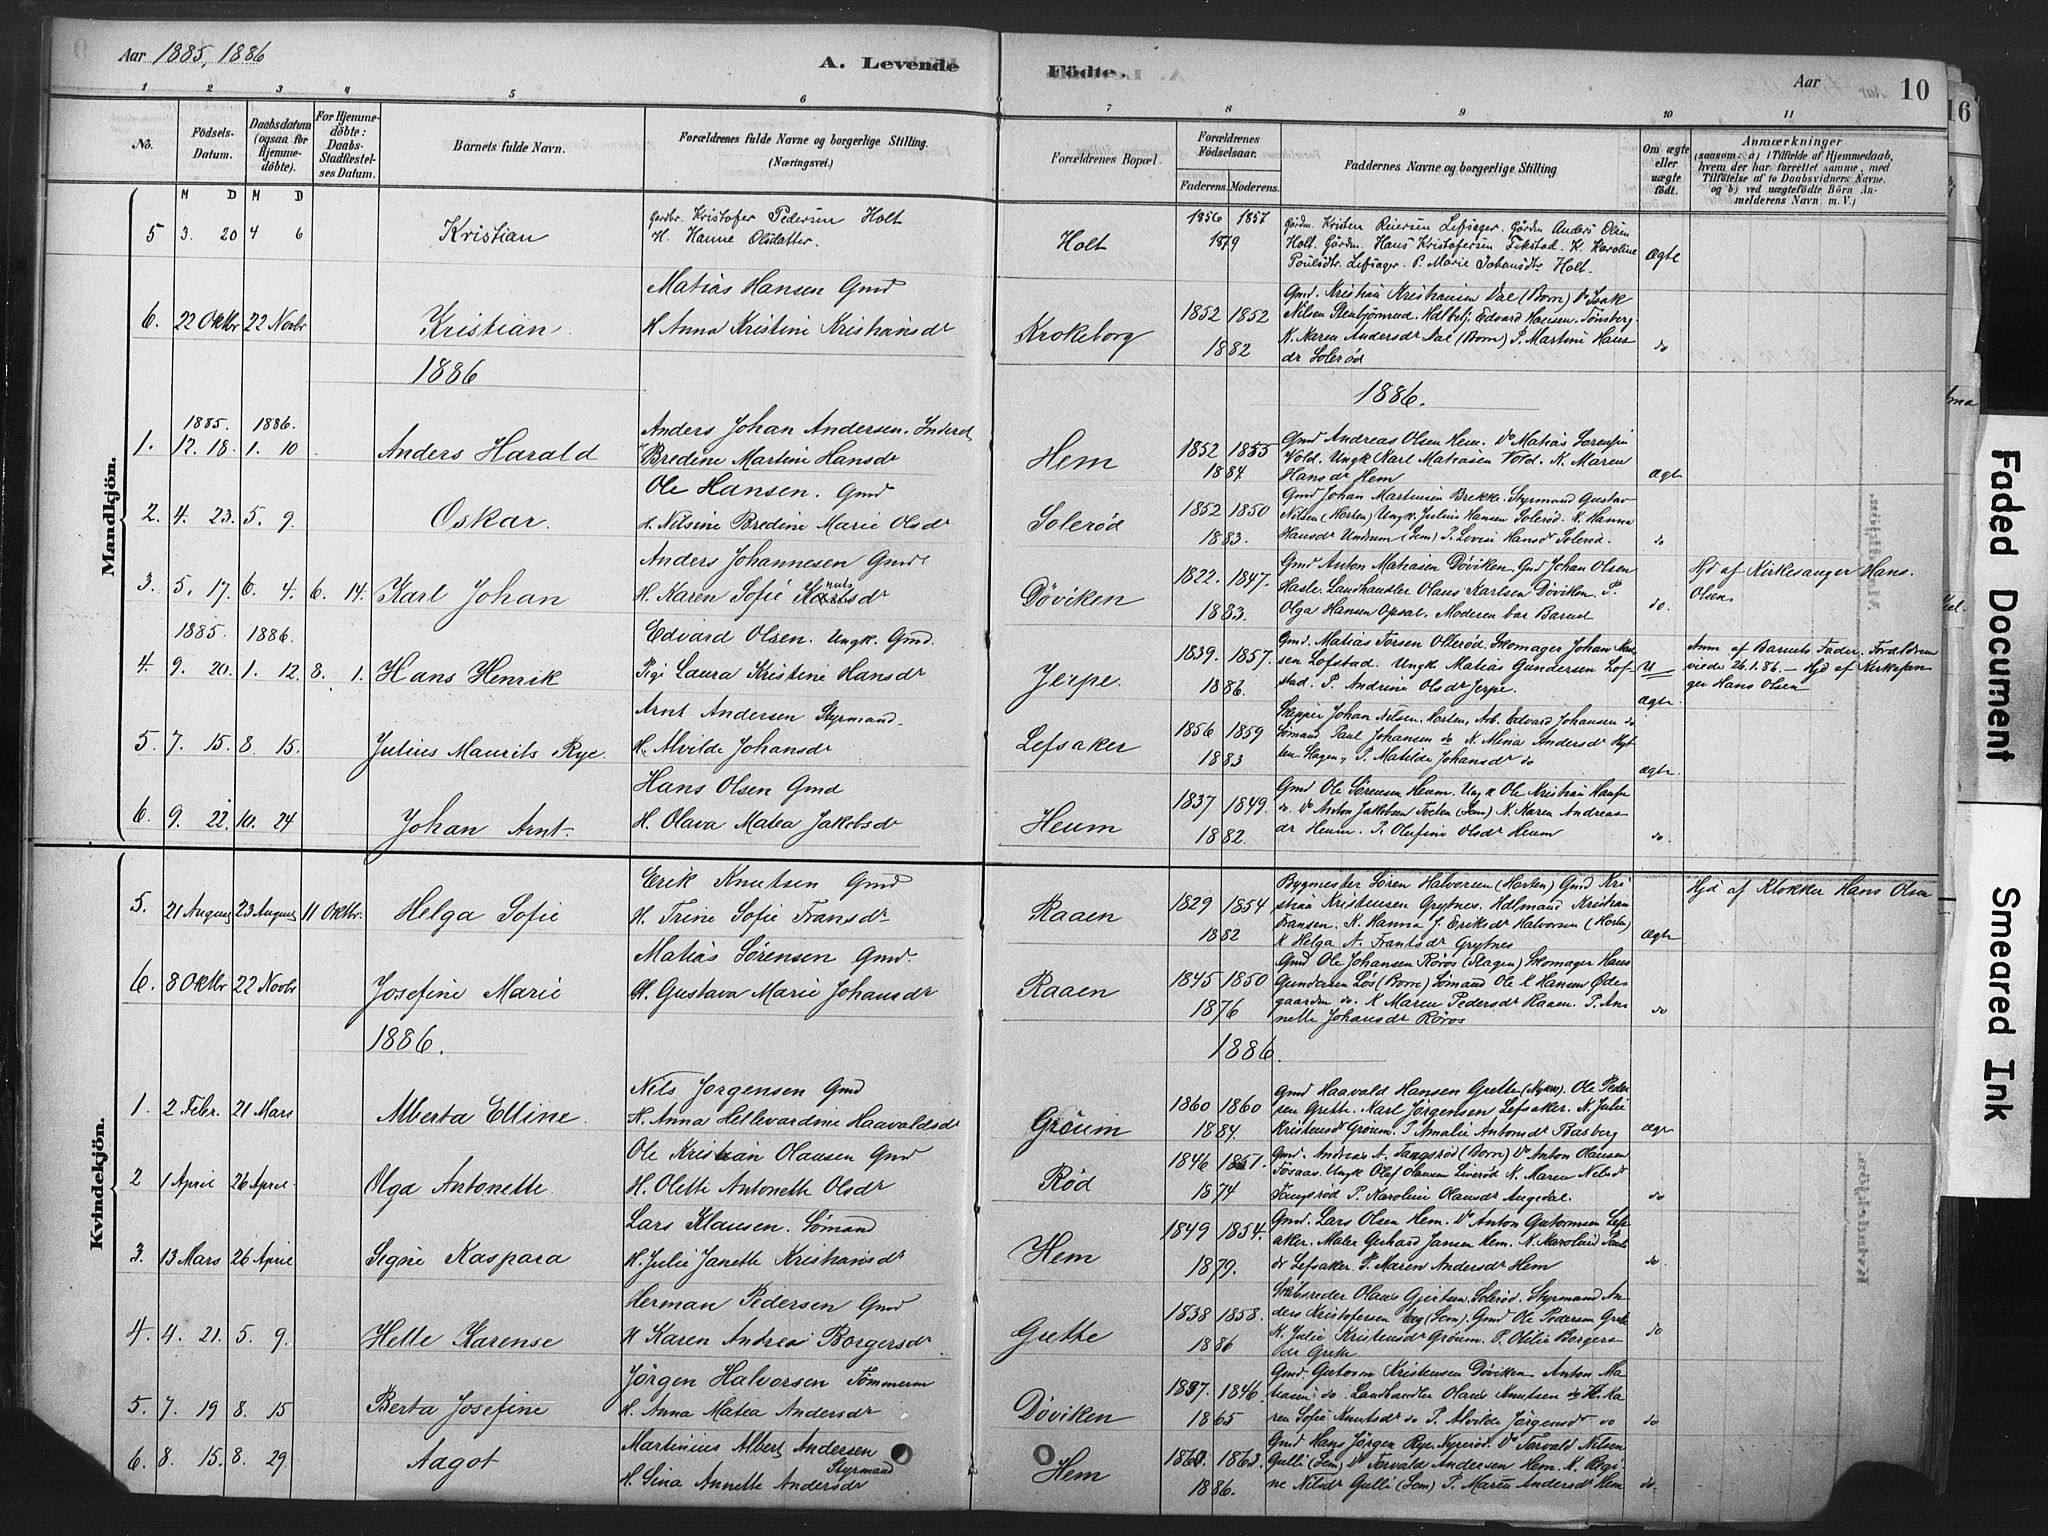 Aar 1885, 1886
A. Levende Födte.
Aar 10
16
1 2 3 4 5 6 6 7 8 9 10 11
No.
Födsels-Datum.
Daabsdatum (ogsaa for Hjemmedöbte).
For Hjemmedöbte: Daabs-Stadfæstelses Datum.
Barnets fulde Navn.
Forældrenes fulde Navne og borgerlige Stilling. (Næringsvei.)
Forældrenes Bopæl.
Forældrenes Födselsaar.
Faderens. Moderens.
Faddernes Navne og borgerlige Stilling
Om ægte eller uægte födt.
Anmærkninger
(saasom: a) i Tilfælde af Hjemmedaab, hvem der har forrettet samme, med Tilföielse af to Daabsvidners Navne, og b) ved uægtefödte Börn Anmelderens Navn m. V.)
M D M D
Mandkjön.
5 3. 20 4 6 Kristian
Gardbr. Kristofer Pedersen Holt
H. Hanne Olsdatter.
Holt
1856 1857
1879
Gårdm. Kristen Reiersen Lefsager. Gårdm Anders Olsen
Holt. Gårdm. Hans Kristofersen Fekstad. K. Karoline
Poulsdtr. Lefsager. P. Marie Johansdtr Holt.
Ægte
6. 22 Oktbr 22 Novbr Kristian
Matias Hansen Gmd
H Anna Kristine Kristiansdr
Krokeborg
1852 1852
1882
Gmd. Kristian Kristiansen Dal (Borre) Do Isak
Nilsen Stenbjörnrud. Edvard Hansen. Tönsberg.
K. Karen Andersdr Dal (Borre) P. Martine Hans
dr Solerød
do
1886
1886.
1885. 1886.
1. 12. 18. 1. 10 Anders Harald
Anders Johan Andersen. Inderst
H Bredine Martine Hansdr
Hem
1852 1855
1884
Gmd Andreas Olsen Hem. Do Matias Sørensen
Vold. Ungk Karl Matiasen Vold. K. Maren
Hansdr Hem
Ægte
2. 4. 23. 5. 9. Oskar.
Ole Hansen. Gmd
H. Nilsine Bredine Marie Olsdr
Solerød
1852 1850
1883.
Gmd Johan Martinsen Brekke. Styrmand Gustav
Nilsen (Horten) Ungk. Julius Hansen Solerød. K. Hanna
Hansdr Undrum (Sem) P. Lovise Hansdr Solerød.
do
3. 5. 17. 6. 4. 6. 14. Karl Johan
Anders Johannesen Gmd
H. Karen Sofie Knutsdr
Døviken
1822. 1847.
1883.
Gmd Anton Matiasen Døviken. Gmd Johan Olsen
Hasle. Landhandler Olaus Karlsen Døviken. P.
Olga Hansen Opsal. Moderen bar Barnet
do.
Hjd af Kirkesanger Hans
Olsen
1885. 1886.
4. 9. 20. 1. 12. 8. 1. Hans Henrik
Edvard Olsen. Ungk. Gmd.
Pige Laura Kristine Hansdr
Jerpe.
1839. 1857.
1886.
Gmd. Matias Torsen Ollerød. Skomager Johan Karl
sen Lofstad. Ungk Matias Gundersen Lof-
stad. P. Andrine Olsdr Jerpe.
U
Ægte.
Anm af Barnets Fader. Forældren
viede 26.1.86. – Hjd af Kirkesan
ger Hans Olsen
5. 7. 15. 8. 15. Julius Maurits Rye.
Arnt Andersen Styrmand.
H. Alvilde Johansdr
Lefsaker
1856 1859
1883
Skipper Johan Nilsen. Horten, Arb. Edvard Johansen do
Sömand Paul Johansen do K. Mina Andersdr Hyt
ten. Slagen, P. Matilde Johansdr do
Ægte
6. 9. 22. 10. 24 Johan Arnt.
Hans Olsen Gmd
H. Olava Matea Jakobsdr
Heum
1837 1849.
1882.
Gmd Ole Sörensen Heum. Ungk Ole Kristian Hansen
do. Do Anton Jakobsen Toeten (Sem) K. Karen Andreas
dr Heum. P. Olufine Olsdr Heum
do.
Kvindekjön.
5. 21 August 23 August 11 Oktbr. Helga Sofie
Erik Knutsen Gmd
H. Trine Sofie Fransdr
Raaen
1829 1854
1882
Bygmester Sören Halvorsen (Horten) Gmd Kri
stian Kristensen Grytnes. Kristian
Fransen. K. Hanna J. Eriksdr Halvorsen (Horten)
K Helga A. Frantsdr Grytnes
Ægte
Hjd af Klokker Hans Olsen
6. 8 Oktbr 22 Novbr Josefine Marie
Matias Sørensen Gmd.
H. Gustava Marie Johansdr
Raaen
1845 1850
1876
Gmd Ole Johansen Röros (Slagen) Skomager Hans
Gundersen Løs (Borre) Sömand Ole K Hansen Øde
gaarden do. K Maren Pedersdr Raaen. P. An
nette Johansdr Röros
do
1886.
1886.
1. 2 Febr. 21 Mars Alberta Elline.
Nils Jørgensen Gmd
H. Anna Hellevardine Haavaldsdr
Gröum
1860 1860
1884.
Gmd Haavald Hansen Grette (Nykn). Ole Peder
sen Grette. Karl Jörgensen Lefsaker. K. Julie
Kristensdr Gröum. P Amalie Antonsdr Basberg
Ægte
2 1 April 26 April. Olga Antonette
Ole Kristian Olausen Gmd
H. Olette Antonette Olsdr
Rød
1846 1851.
1874
Gmd. Andreas A. Fangsrød (Borre) Do Anton Olausen
Fossaas. Ungk Olaf Olausen Liverød K. Maren Nilsdr
Fangsrød P. Karoline Olausdr Augedal.
do
3. 13 Mars 26 April Signe Kaspara
Lars Klausen. Sömand
H. Julie Janette Kristiansdr
Hem
1849 1854.
1879.
Gmd. Lars Olsen Hem. Do Anton Gutormsen Lefs
aker. Maler Gerhard Jansen Hem. K. Karoline Pauls
dr Lefsaker. P. Maren Andersdr Hem
do.
4. 4. 21. 5. 9. Helle Karense
Herman Pedersen Gmd
H Karen Andrea Borgersdr
Grette
1838 1858.
1886
Skibsreder Olaus Gjertsen. Solerød. Styrmand An
ders Kristofersen Eeg (Sem). Gmd Ole Pedersen Grette
K. Julie Kristensdr Gröum. P. Otilie Borgers
dr Grette
do
5. 7. 19 8. 15 Berta Josefine
Jörgen Halvorsen Tömmerm
H. Anna Matea Andersdr
Døviken
1837. 1846.
1865
Gmd. Gutorm Kristensen Døviken. Anton Ma
tiasen do. Landhandler Olaus Knutsen do H. Ka
ren Sofie Knutsdr do P. Alvilde Jørgensdr do
do
6. 8. 15. 8. 29 Aagot
Martinius Albert Andersen
Styrmand
H. Sina Annette Andersdr
Hem
1860. 1863.
1886.
Gmd Hans Jörgen Rye. Nyerød. Do Torvald Nilsen
Gulli (Sem) Do Torvald Andersen Hem. K. Regi
ne Nilsdr Gulli (Sem) P. Maren Andersdr Hem
do.
Faded Document
Smeared Ink